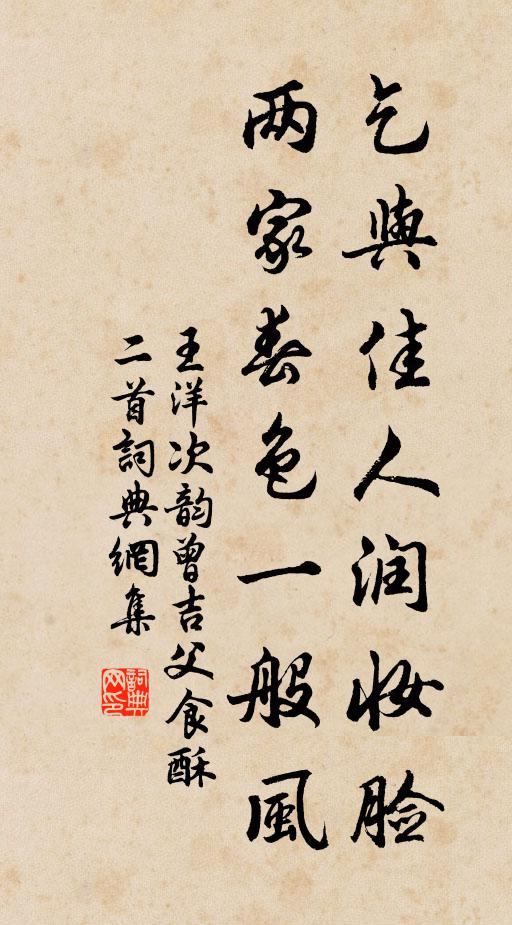 乞與佳人润妆脸
两家春色一般風
王洋次韵曾吉父食酥
二首詞典網集
詞典网印